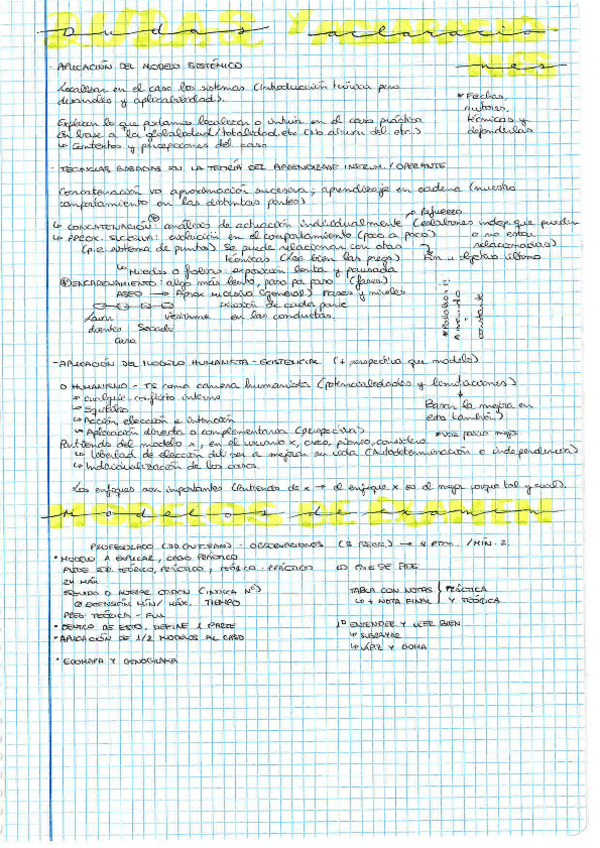 DUDAS Y ACLARACIONES
- APLICACIÓN DEL MODELO SISTÉMICO
Localizar en el caso los sistemas (introducción teórica pero
desarrollo y aplicabilidad).
* Fechas,
autores,
técnicas y
Explicar lo que podamos localizar o intuir en el caso práctico
En base a la globalidad/totalidad etc.
↳ Contextos y percepciones del caso
- TÉCNICAS BASADAS EN LA TEORÍA DEL APRENDIZAJE INSTRUM./OPERANTE
Concatenación vs aproximación sucesiva; aprendizaje en cadena (nuestro
comportamiento en las distintas partes)
↗ Refuerzo
↳ CONCATENACIÓN: análisis de actuación individualmente (eslabones indep. que pueden
o no estar
relacionados)
↳ APROX. SUCESIVA: evolución en el comportamiento (poco a poco)
(p.e. sistema de puntos) Se puede relacionar con otras
técnicas (lee bien las pregs)
En u objetivo último
↳ Miedos o fobias: exposición lenta y pausada
ENCADENAMIENTO: algo más lento, paso pa paso (fases)
ASEO → Aprox sucesiva (general) Fases y niveles
de cada parte
Lavar
dientes
Secado
cara
Vestirme
en las conductas.
constante
- APLICACIÓN DEL MODELO HUMANISTA-EXISTENCIAL (+ perspectiva que modelo)
O HUMANISMO - TS como carrera humanista (potencialidades y limitaciones)
cualquier conflicto interno
Equilibrio
Acción, elección e intención
Aplicación directa o complementaria (perspectiva)
Basar la mejora en
esto también)
Partiendo del modelo x, en el usuario x, creo, pienso, considero
↳ Libertad de elección del ser a mejorar su vida (Autodeterminación e independencia)
↳ Individualización de los casos.
Los enfoques son importantes (Partiendo de x → el enfoque x es el mejor porque tal y cual).
MODELOS DE EXAMEN
PROFESORADO - OBSERVACIONES → 4 PTOS. / MÍN. 2.
* MODELO A EXPLICAR, CASO PRÁCTICO
PUEDE SER TEÓRICO, PRÁCTICO, TEÓRICO-PRÁCTICO
QUE SE PIDE
2H MÁX
SEGUIDO O ALTERAR ORDEN (INDICA Nº)
EXTENSIÓN MÍN/MÁX. TIEMPO
TABLA CON NOTAS
↳ + NOTA FINAL
PRÁCTICA
Y TEÓRICA
* DENTRO DE ESTO, DEFINE 1 PARTE
* APLICACIÓN DE 1/2 MODELOS AL CASO
1º ENTENDER Y LEER BIEN
↳ SUBRAYAR
↳ LÁPIZ Y GOMA
* ECOMAPA Y GENOGRAMA